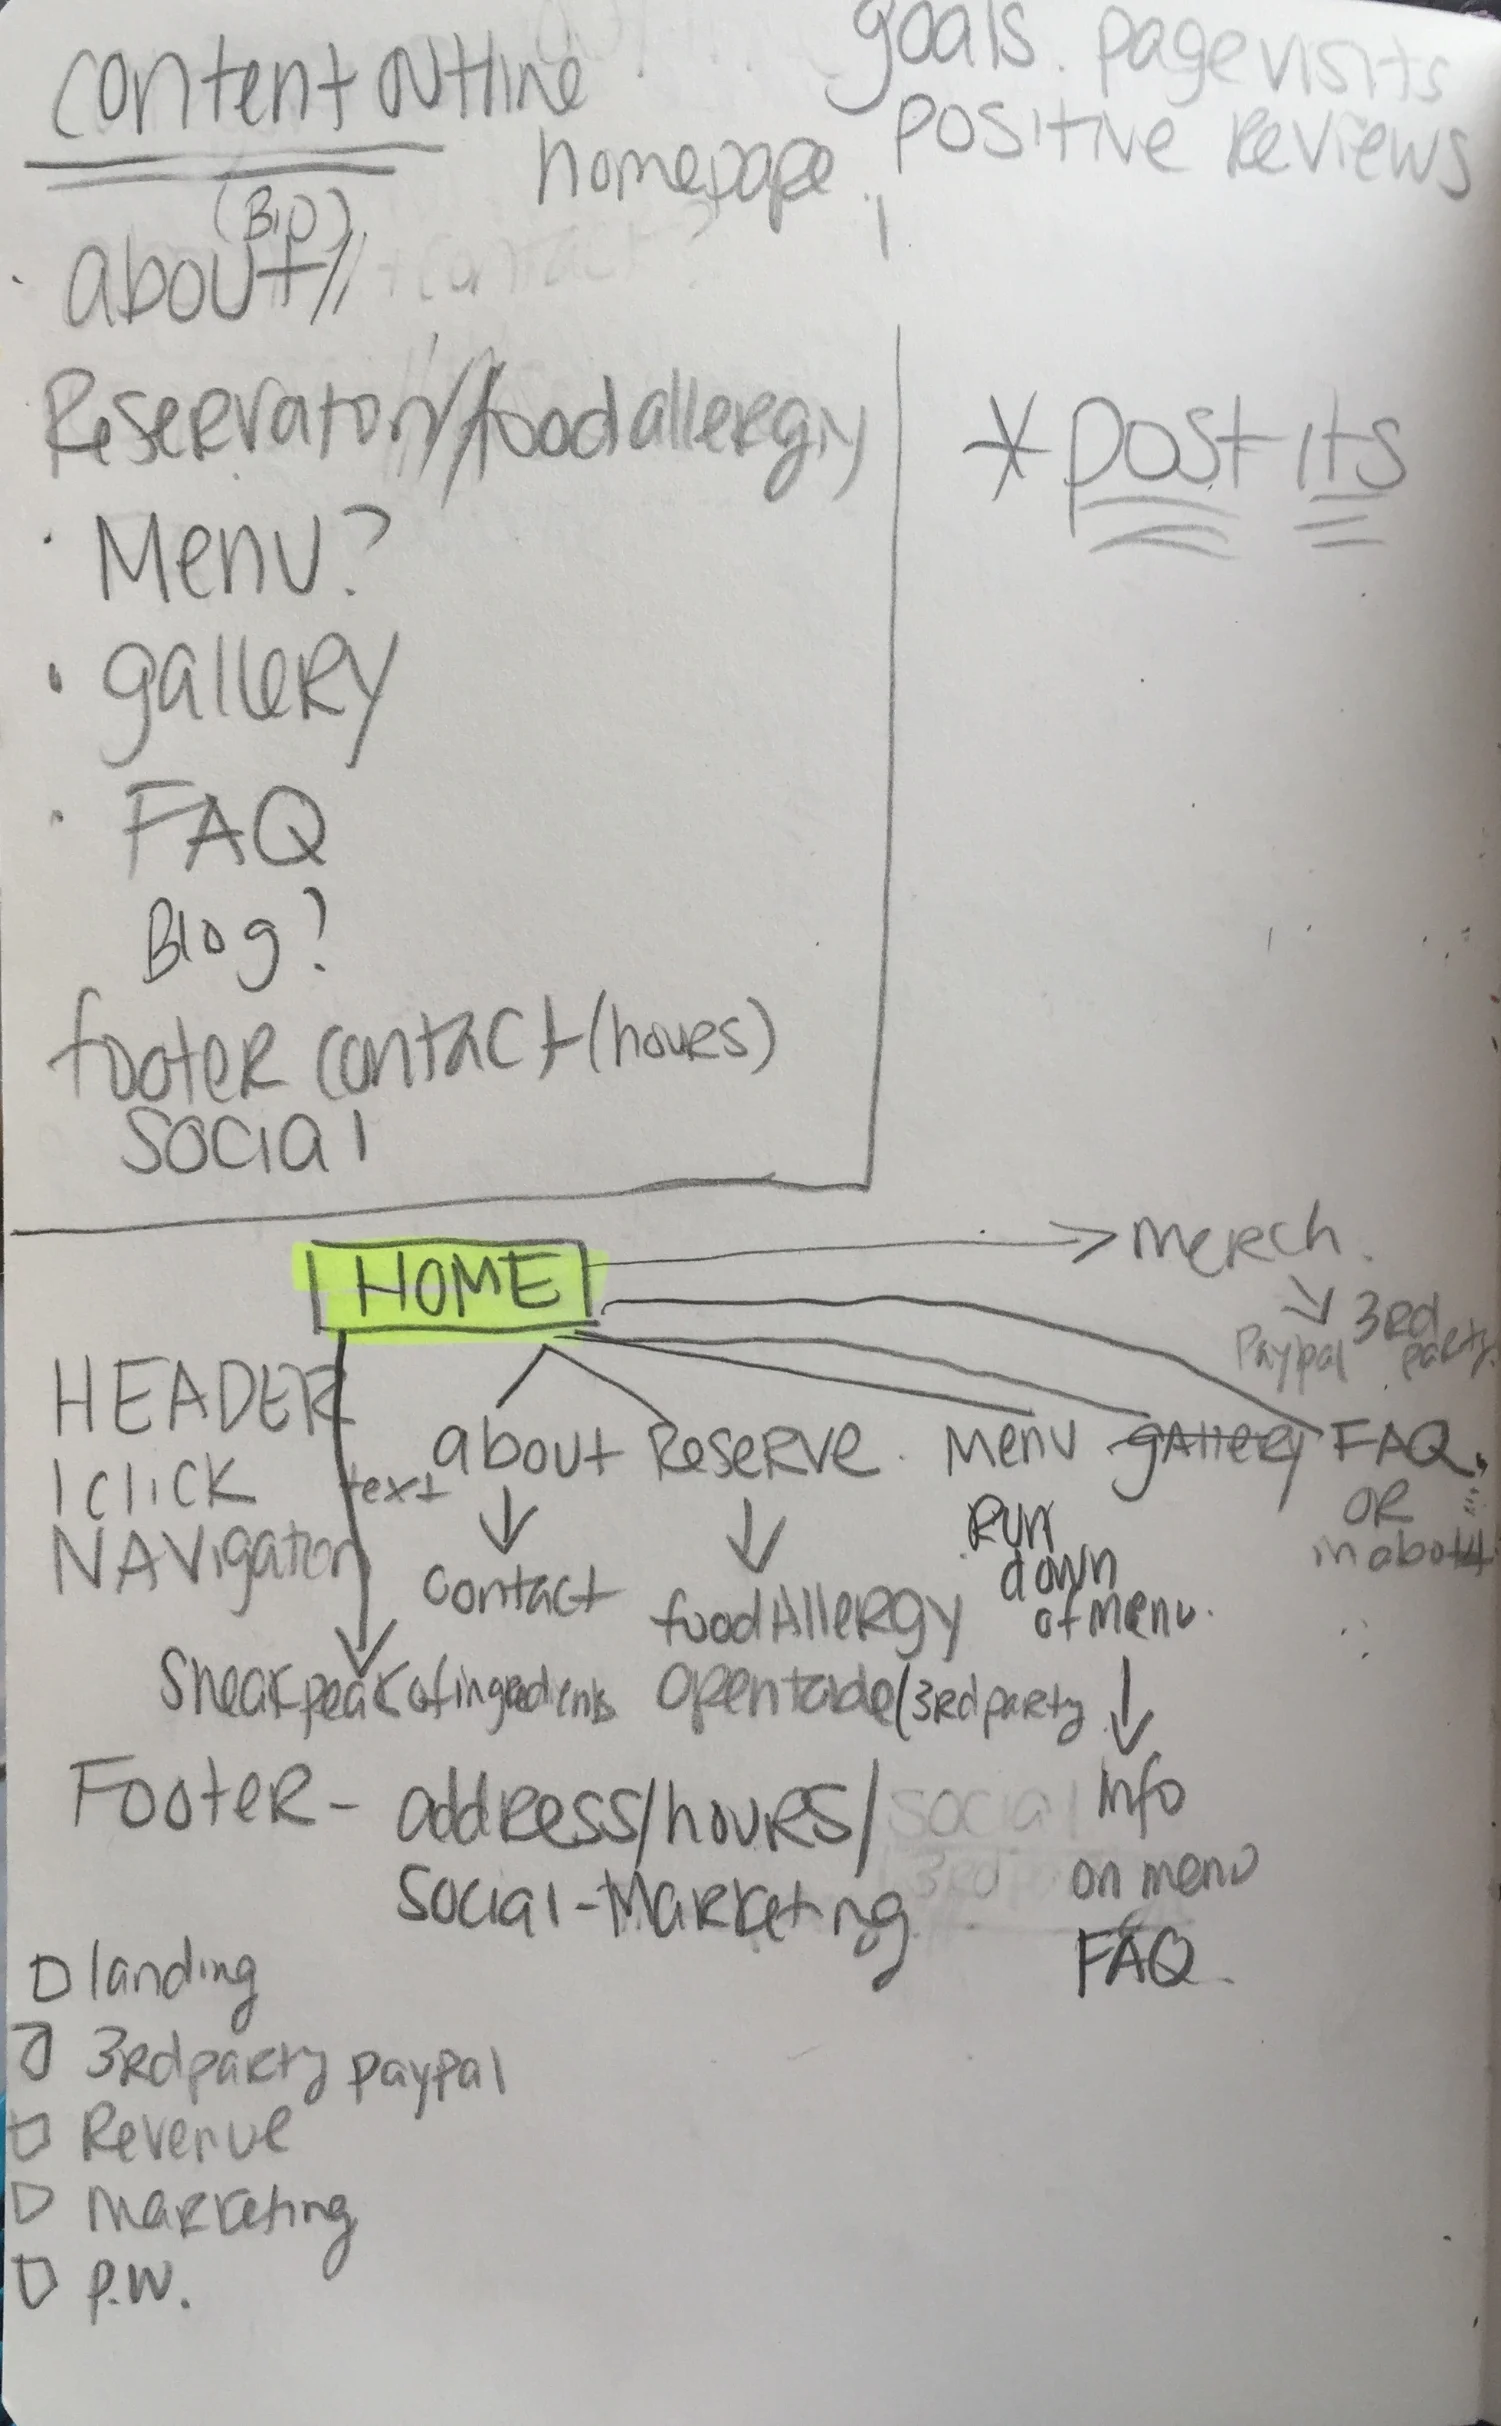 content outline
goals. page visits
positive Reviews
homepage
(BiO)
about // + contact?
Reservation//food allergy
* post its
· Menu?
· gallery
· FAQ
Blog?
footer contact (hours)
social
HOME
→ merch.
3rd party
Paypal
HEADER
1 click
NAVigation
text
about Reserve. Menu gallery FAQ.
OR
contact
food Allergy
Run
down
of menu.
sneak peak of ingredients
opentable (3rd party
Footer - address/hours/ social
social-Marketing 3rd
Info
on menu
FAQ.
landing
3rd party paypal
Revenue
marketing
P.W.